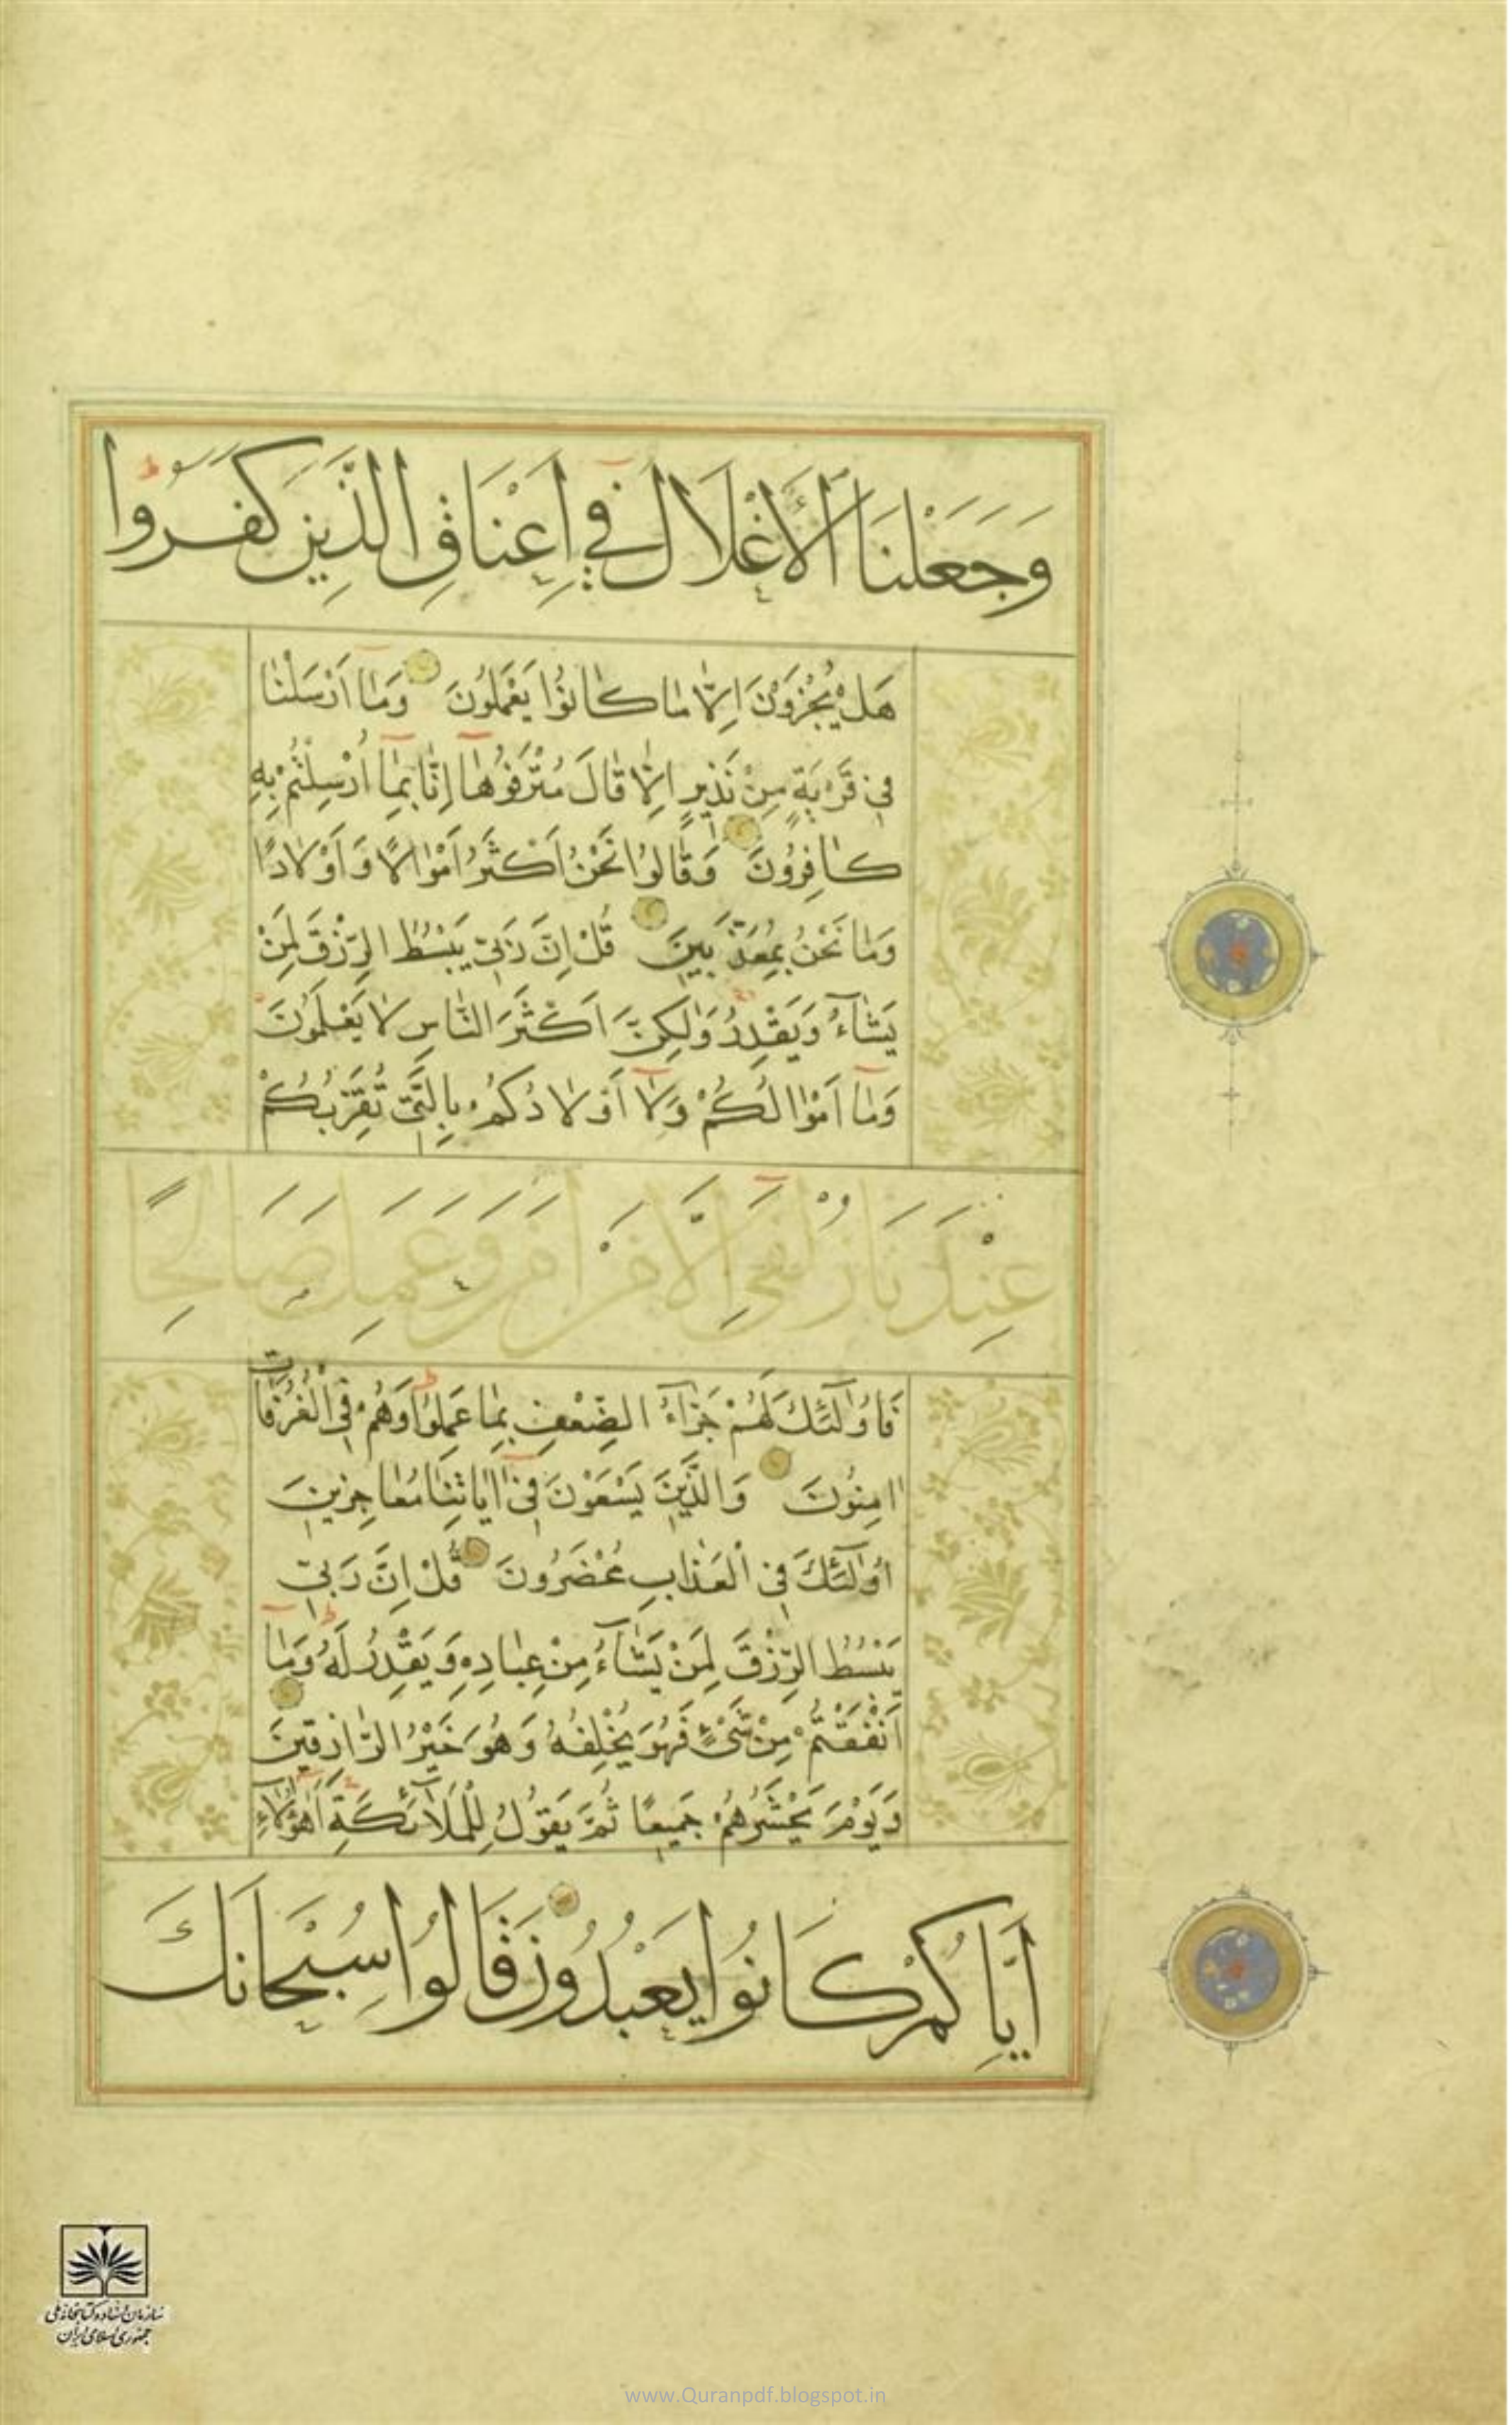 وَجَعَلْنَا الْأَغْلَالَ فِي أَعْنَاقِ الَّذِينَ كَفَرُوا
هَلْ يُجْزَوْنَ اِلَّا مَا كَانُوا يَعْمَلُونَ وَمَا اَرْسَلْنَا
فِي قَرْيَةٍ مِنْ نَذِيرٍ اِلَّا قَالَ مُتْرَفُوهَا اِنَّا بِمَا اُرْسِلْتُمْ بِهِ
كَافِرُونَ وَقَالُوا نَحْنُ اَكْثَرُ اَمْوَالًا وَاَوْلَادًا
وَمَا نَحْنُ بِمُعَذَّبِينَ قُلْ اِنَّ رَبِّي يَبْسُطُ الرِّزْقَ لِمَنْ
يَشَآءُ وَيَقْدِرُ وَلٰكِنَّ اَكْثَرَ النَّاسِ لَا يَعْلَمُونَ
وَمَا اَمْوَالُكُمْ وَلَا اَوْلَادُكُمْ بِالَّتِي تُقَرِّبُكُمْ
عِنْدَنَا زُلْفَى اِلَّا مَنْ اٰمَنَ وَعَمِلَ صَالِحًا
فَاُولٰٓئِكَ لَهُمْ جَزَآءُ الضِّعْفِ بِمَا عَمِلُوا وَهُمْ فِي الْغُرُفَاتِ
اٰمِنُونَ وَالَّذِينَ يَسْعَوْنَ فِي اٰيَاتِنَا مُعَاجِزِينَ
اُولٰٓئِكَ فِي الْعَذَابِ مُحْضَرُونَ قُلْ اِنَّ رَبِّي
يَبْسُطُ الرِّزْقَ لِمَنْ يَشَآءُ مِنْ عِبَادِهِ وَيَقْدِرُ لَهُ وَمَا
اَنْفَقْتُمْ مِنْ شَيْءٍ فَهُوَ يُخْلِفُهُ وَهُوَ خَيْرُ الرَّازِقِينَ
وَيَوْمَ يَحْشُرُهُمْ جَمِيعًا ثُمَّ يَقُولُ لِلْمَلَآئِكَةِ اَهٰٓؤُلَآءِ
اِيَّاكُمْ كَانُوا يَعْبُدُونَ قَالُوا سُبْحَانَكَ
سازمان اسناد و کتابخانه ملی
جمهوری اسلامی ایران
www.Quranpdf.blogspot.in